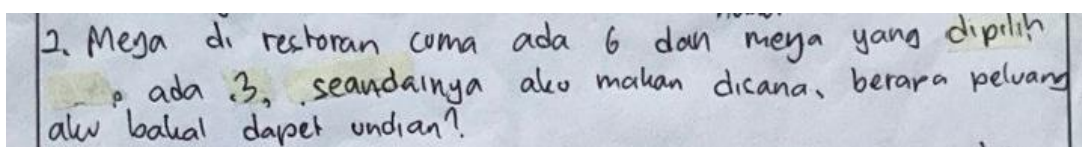 2. Meja di restoran cuma ada 6 dan meja yang dipilih
ada 3, seandainya aku makan disana, berapa peluang
aku bakal dapet undian?